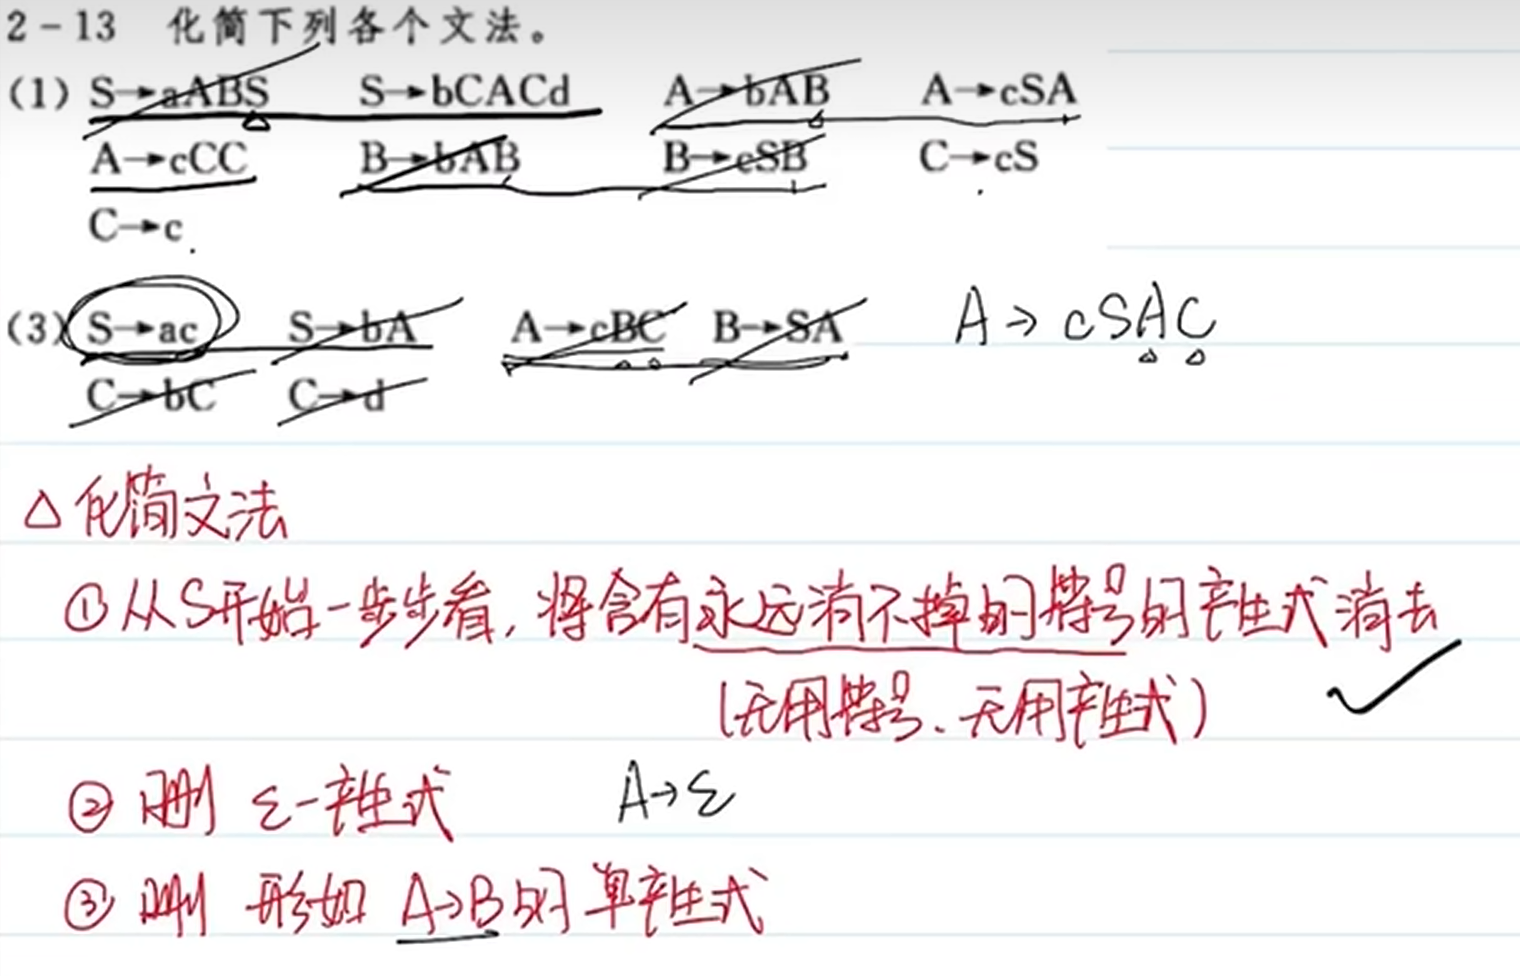 2-13 化简下列各个文法。
(1) S→aABS S→bCACd A→bAB A→cSA
A→cCC B→bAB B→cSB C→cS
C→c
(3) S→ac S→bA A→cBC B→SA A→cSAC
C→bC C→d
△ 化简文法
① 从S开始一步步看,将含有永远消不掉的符号的产生式消去
(无用符号、无用产生式)
② 删 ε-产生式 A→ε
③ 删 形如 A→B的 单产生式